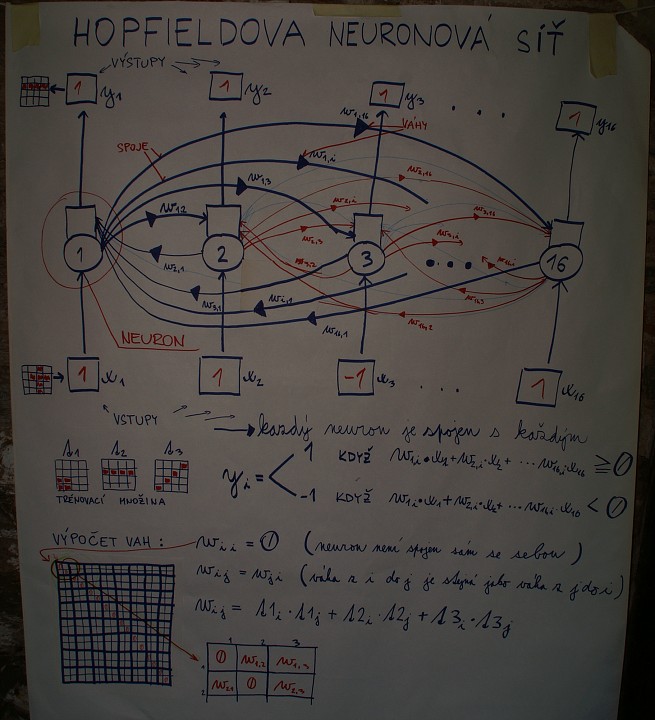 HOPFIELDOVA NEURONOVÁ SÍŤ
VÝSTUPY
1 y1 1 y2 1 y3 . . . 1 y16
w1,16 VÁHY
SPOJE w1,i
w1,3 w2,16
w12 w2,i w3,16
w2,3 w3,i
1 2 3 ... 16
w2,1 w3,2
w3,1 wi,1 w16,3
w16,1 w16,2
NEURON
1 x1 1 x2 -1 x3 . . . 1 x16
VSTUPY
každý neuron je spojen s každým
s1 s2 s3
TRÉNOVACÍ MNOŽINA
yi = < 1 KDYŽ w1i•x1+w2,i•x2+ ...w16,i•x16 ≥ 0
-1 KDYŽ w1i•x1+w2,i•x2+ ...w16i•x16 < 0
VÝPOČET VAH : wii = 0 (neuron není spojen sám se sebou)
wij = wji (váha z i do j je stejná jako váha z j do i)
wij = s1i·s1j + s2i·s2j + s3i·s3j
1 2 3
1 0 w1,2 w1,3
2 w21 0 w2,3